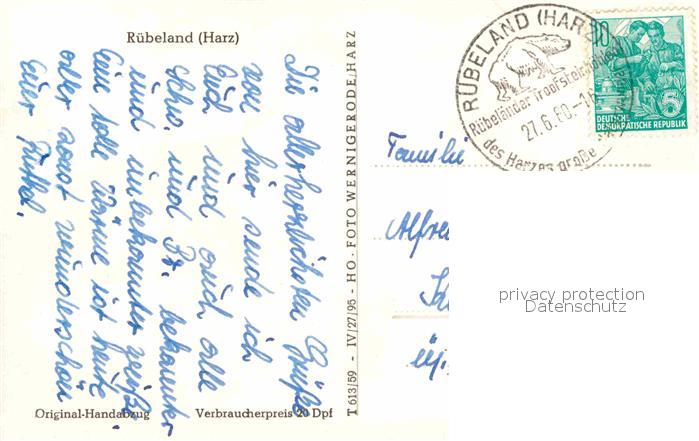 Rübeland (Harz)
Die allerherzlichsten Grüße
von hier sende ich
Euch und auch alle
Scho. und Pr. bekannter
und unbekannter weise.
Eine tolle Wärme ist heute
aber sonst wunderschön
Euer
Original-Handabzug
Verbraucherpreis 20 Dpf
T 613/59 - IV/27/95 - HO - FOTO WERNIGERODE/HARZ
RÜBELAND (HARZ)
Rübeländer Tropfsteinhöhlen
27.6.60.-16
des Harzes größte
10
5
DEUTSCHE
DEMOKRATISCHE REPUBLIK
Familie
Alfred
privacy protection
Datenschutz